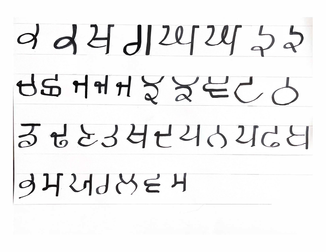 ਕ ਕ ਖ ਗ ਘ ਘ ਙ ਙ
ਚ ਛ ਜ ਜ ਜ ਝ ਝ ਞ ਟ ਠ
ਡ ਢ ਣ ਤ ਥ ਦ ਧ ਨ ਪ ਫ ਬ
ਭ ਮ ਯ ਰ ਲ ਵ ਸ